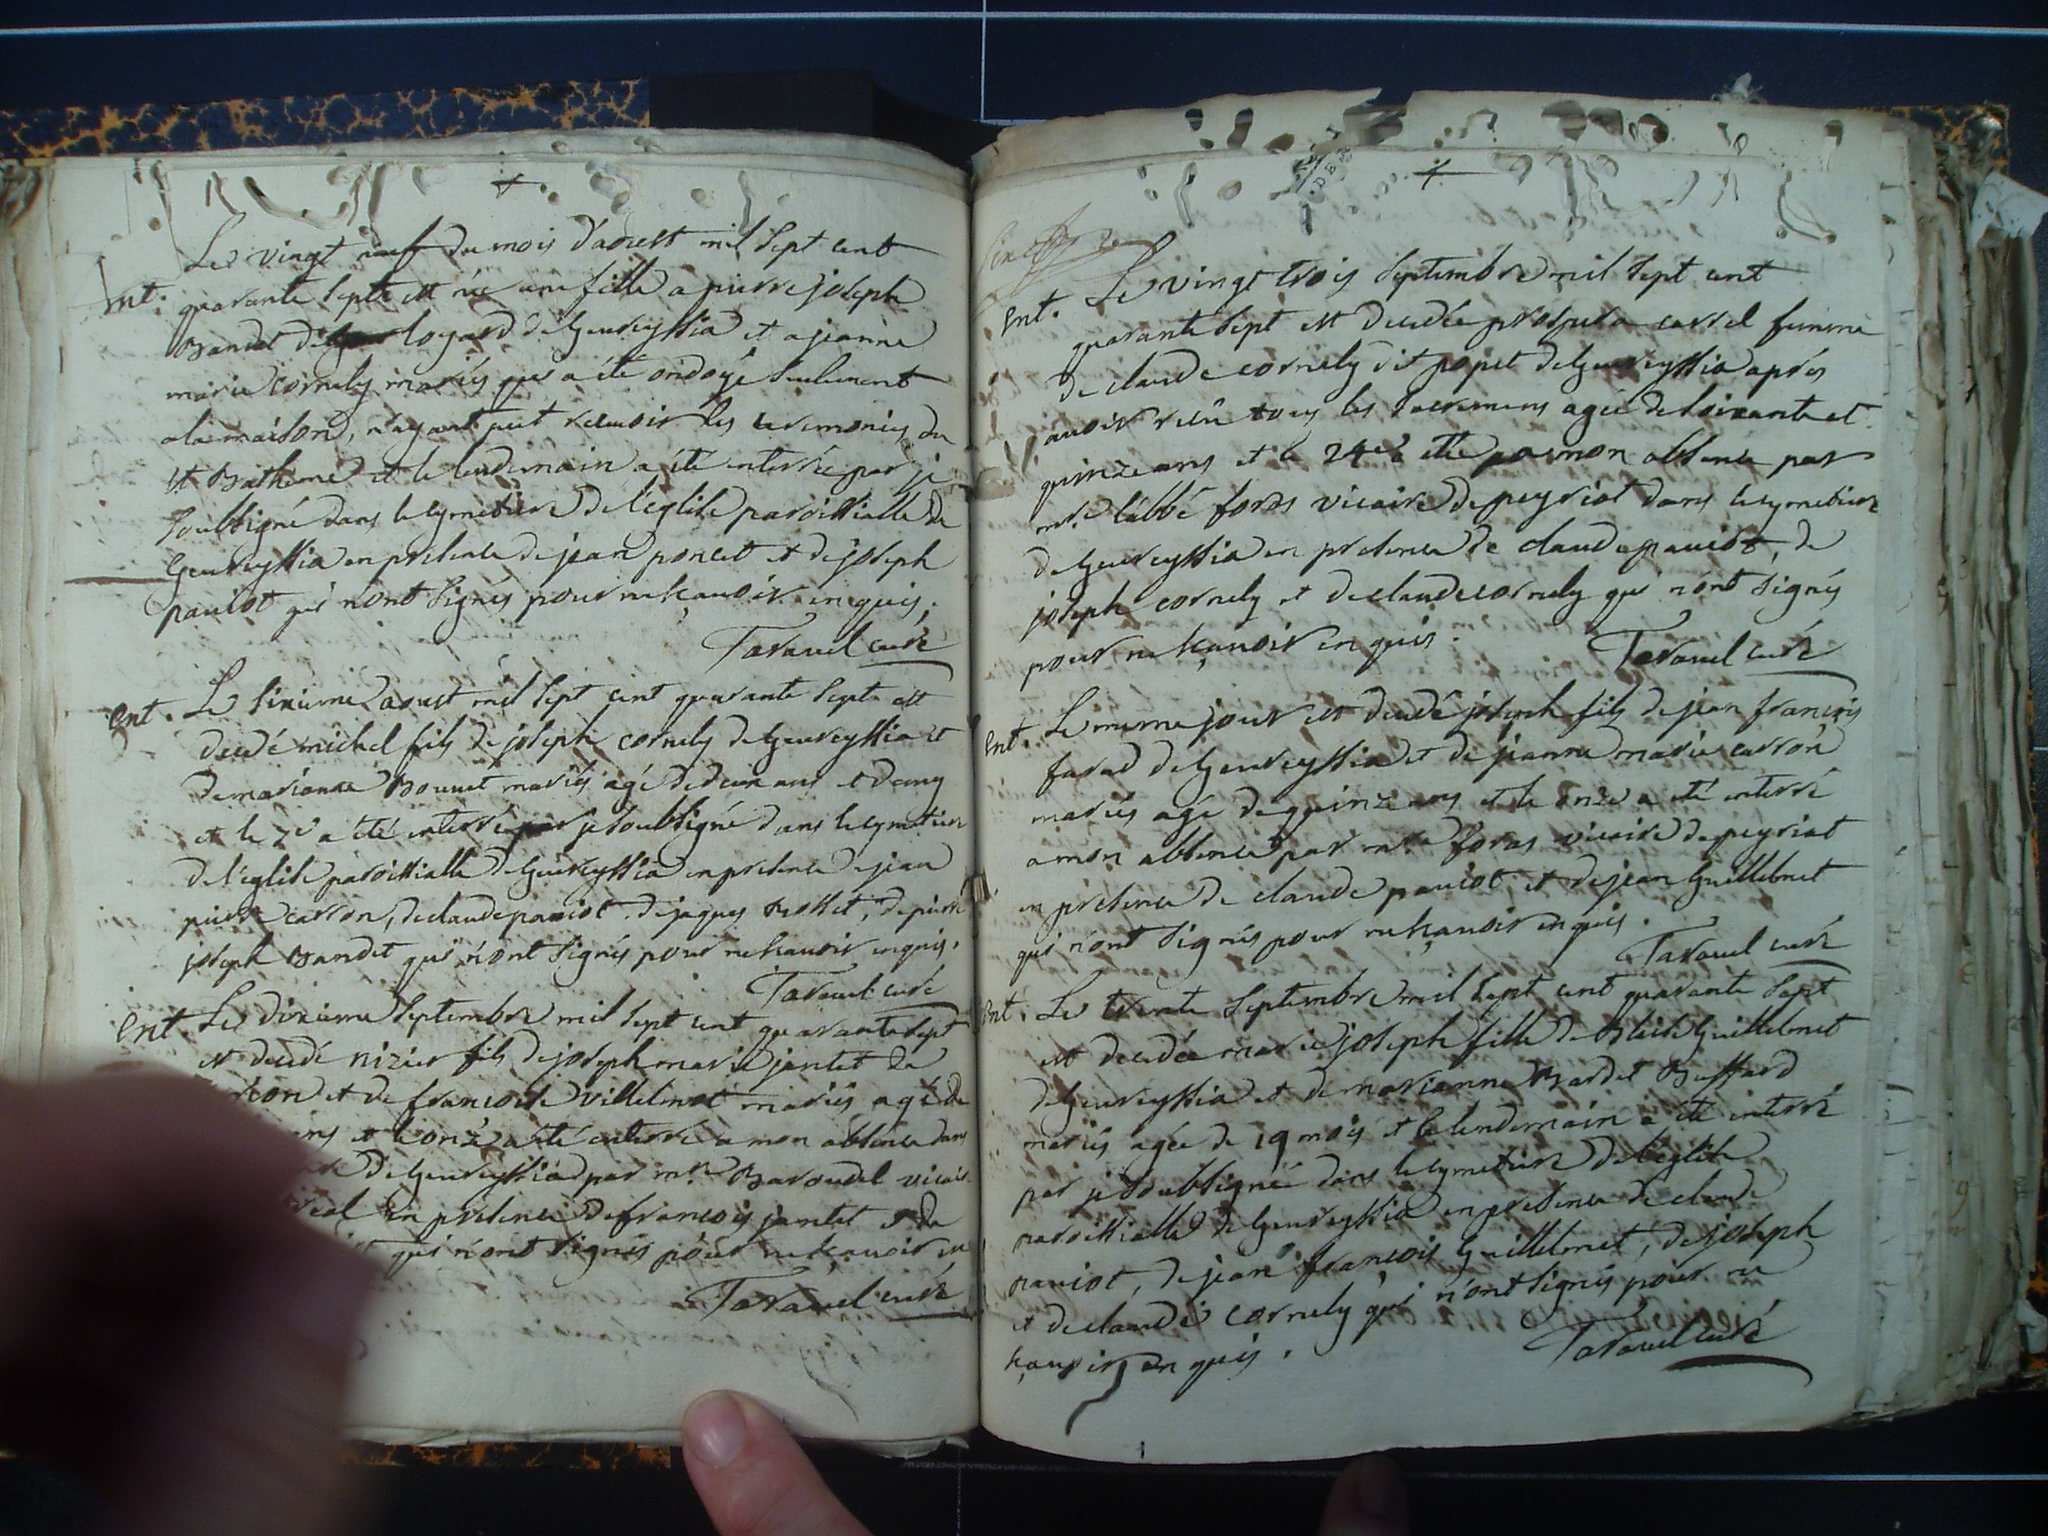 Le vingt neuf du mois d'aoust mil sept cent
Ent. quarante sept est née une fille a pierre joseph
Bandet de logard de Geureyssia et a jeanne
marie cornely mariés qui a été ondoyé seulement
a la maison, n'ayant peut recevoir les ceremonies du
st Batheme et le lendemain a été enterrée par je
soussigné dans le cymetiere de l'eglise paroissialle de
Geureyssia en presence de jean poncet et de joseph
paviot qui n'ont signés pour ne sçavoir enquis.
Taravel curé
Ent. Le sixieme aoust mil sept cent quarante sept est
decedé michel fils de joseph cornely de Geureyssia et
de marianne Bonnet mariés agé de deux ans et demy
et le 7e a été enterré par je soubsigné dans le cymetiere
de l'eglise paroissialle de Geureyssia en presence de jean
pierre carron, de claude paviot, de jaques rosset, de pierre
joseph Bandet qui n'ont signés pour ne scavoir enquis.
Taravel curé
Ent. Le dixieme septembre mil sept cent quarante sept
est decedé nizier fils de joseph marie jantet de
et de francoise villelmot mariés agé de
ans et le onze a été enterré a mon absence dans
de Geureyssia par mre Baroudel vicaire
en presence de francois jantet et de
qui n'ont signés pour ne sçavoir en
Taravel curé
Le vingt trois septembre mil sept cent
Ent. quarante sept est decedée prospera carrel femme
de claude cornely dit popet de Geureyssia aprés
avoir reçu tous les sacremens agée de soixante et
quinze ans et le 24e a été a mon absence par
mre l'abbé foras vicaire de peyriat dans le cymetiere
de Geureyssia en presence de claude paviot, de
joseph cornely et de claude cornely qui n'ont signés
pour ne sçavoir enquis.
Taravel curé
Ent. Le meme jour est decedé joseph fils de jean francois
favad de Geureyssia et de jeanne marie carron
mariés agé de quinze ans et le onze a été enterré
a mon absence par mre foras vicaire de peyriat
en presence de claude paviot et de jean Guillelmet
qui n'ont signés pour ne sçavoir enquis.
Taravel curé
Ent. Le trente septembre mil sept cent quarante sept
est decedée marie joseph fille de Blaise Guillelmet
de Geureyssia et de marianne Bardet Buffard
mariés agée de 19 mois et le lendemain a été enterré
par je soubsigné dans le cymetiere de l'eglise
paroissialle de Geureyssia en presence de claude
paviot, de jean francois Guillelmet, de joseph
et de claude cornely qui n'ont signés pour ne
sçavoir enquis.
Taravel curé